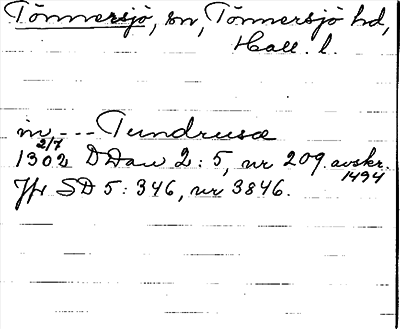 Tönnersjö, sn, Tönnersjö hd,
Hall. l.
in --- Tundrusæ
2/7
1302 DDan 2:5, nr 209. avskr.
1494
Jfr SD 5:346, nr 3846.